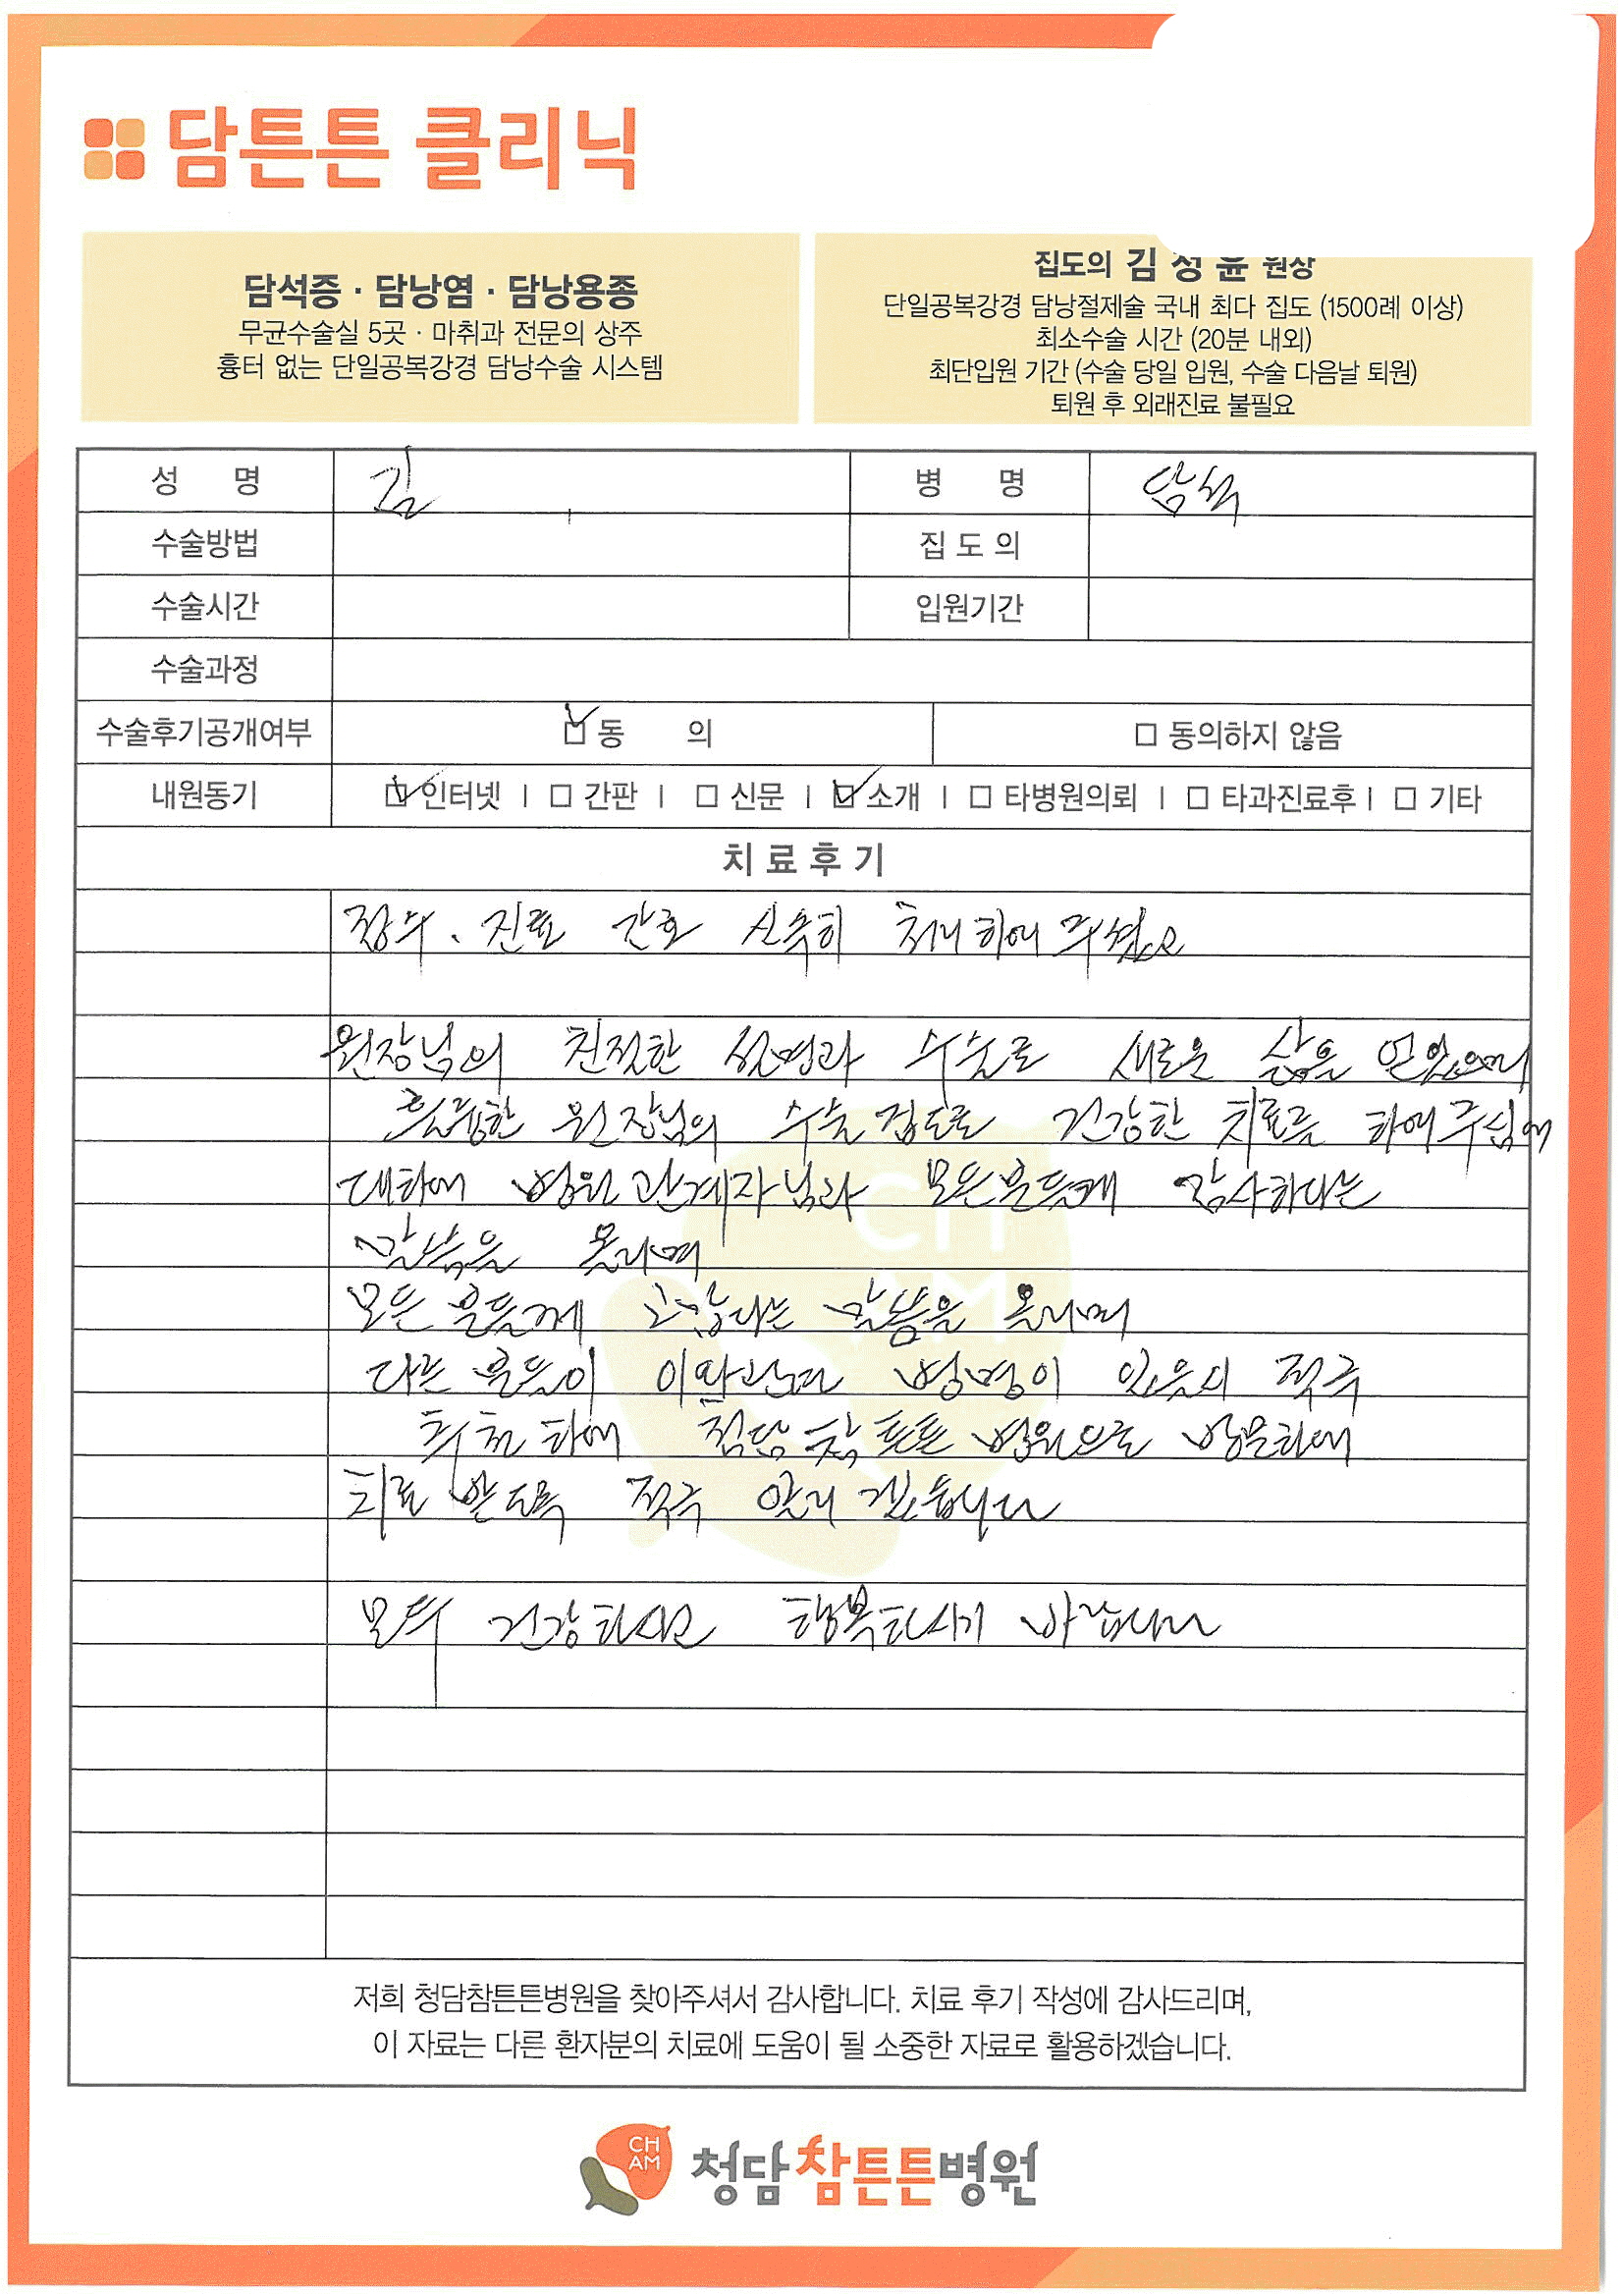 담튼튼 클리닉
담석증 · 담낭염 · 담낭용종
무균수술실 5곳 · 마취과 전문의 상주
흉터 없는 단일공복강경 담낭수술 시스템
집도의 김정윤 원장
단일공복강경 담낭절제술 국내 최다 집도 (1500례 이상)
최소수술 시간 (20분 내외)
최단입원 기간 (수술 당일 입원, 수술 다음날 퇴원)
퇴원 후 외래진료 불필요
성 명 김 병 명 담석
수술방법 집 도 의
수술시간 입원기간
수술과정
수술후기공개여부 ☑ 동 의 □ 동의하지 않음
내원동기 ☑ 인터넷 | □ 간판 | □ 신문 | ☑ 소개 | □ 타병원의뢰 | □ 타과진료후 | □ 기타
치 료 후 기
진료 간호 신속히 처리하여 주셨고
원장님의 친절한 설명과 수술로 새로운 삶을 얻었으며
훌륭한 원장님의 수술집도로 건강한 치료를 하여주심에
대하여 병원관계자님과 모든분들께 감사하다는
말씀을 올리며
모든 분들께 고맙다는 말씀을 올리며
다른 분들이 이와관련 병명이 있을시 적극
추천하여 청담참튼튼병원으로 방문하여
치료 받도록 적극 알리겠습니다
모두 건강하시고 행복하시기 바랍니다
저희 청담참튼튼병원을 찾아주셔서 감사합니다. 치료 후기 작성에 감사드리며,
이 자료는 다른 환자분의 치료에 도움이 될 소중한 자료로 활용하겠습니다.
CH
AM
청담참튼튼병원